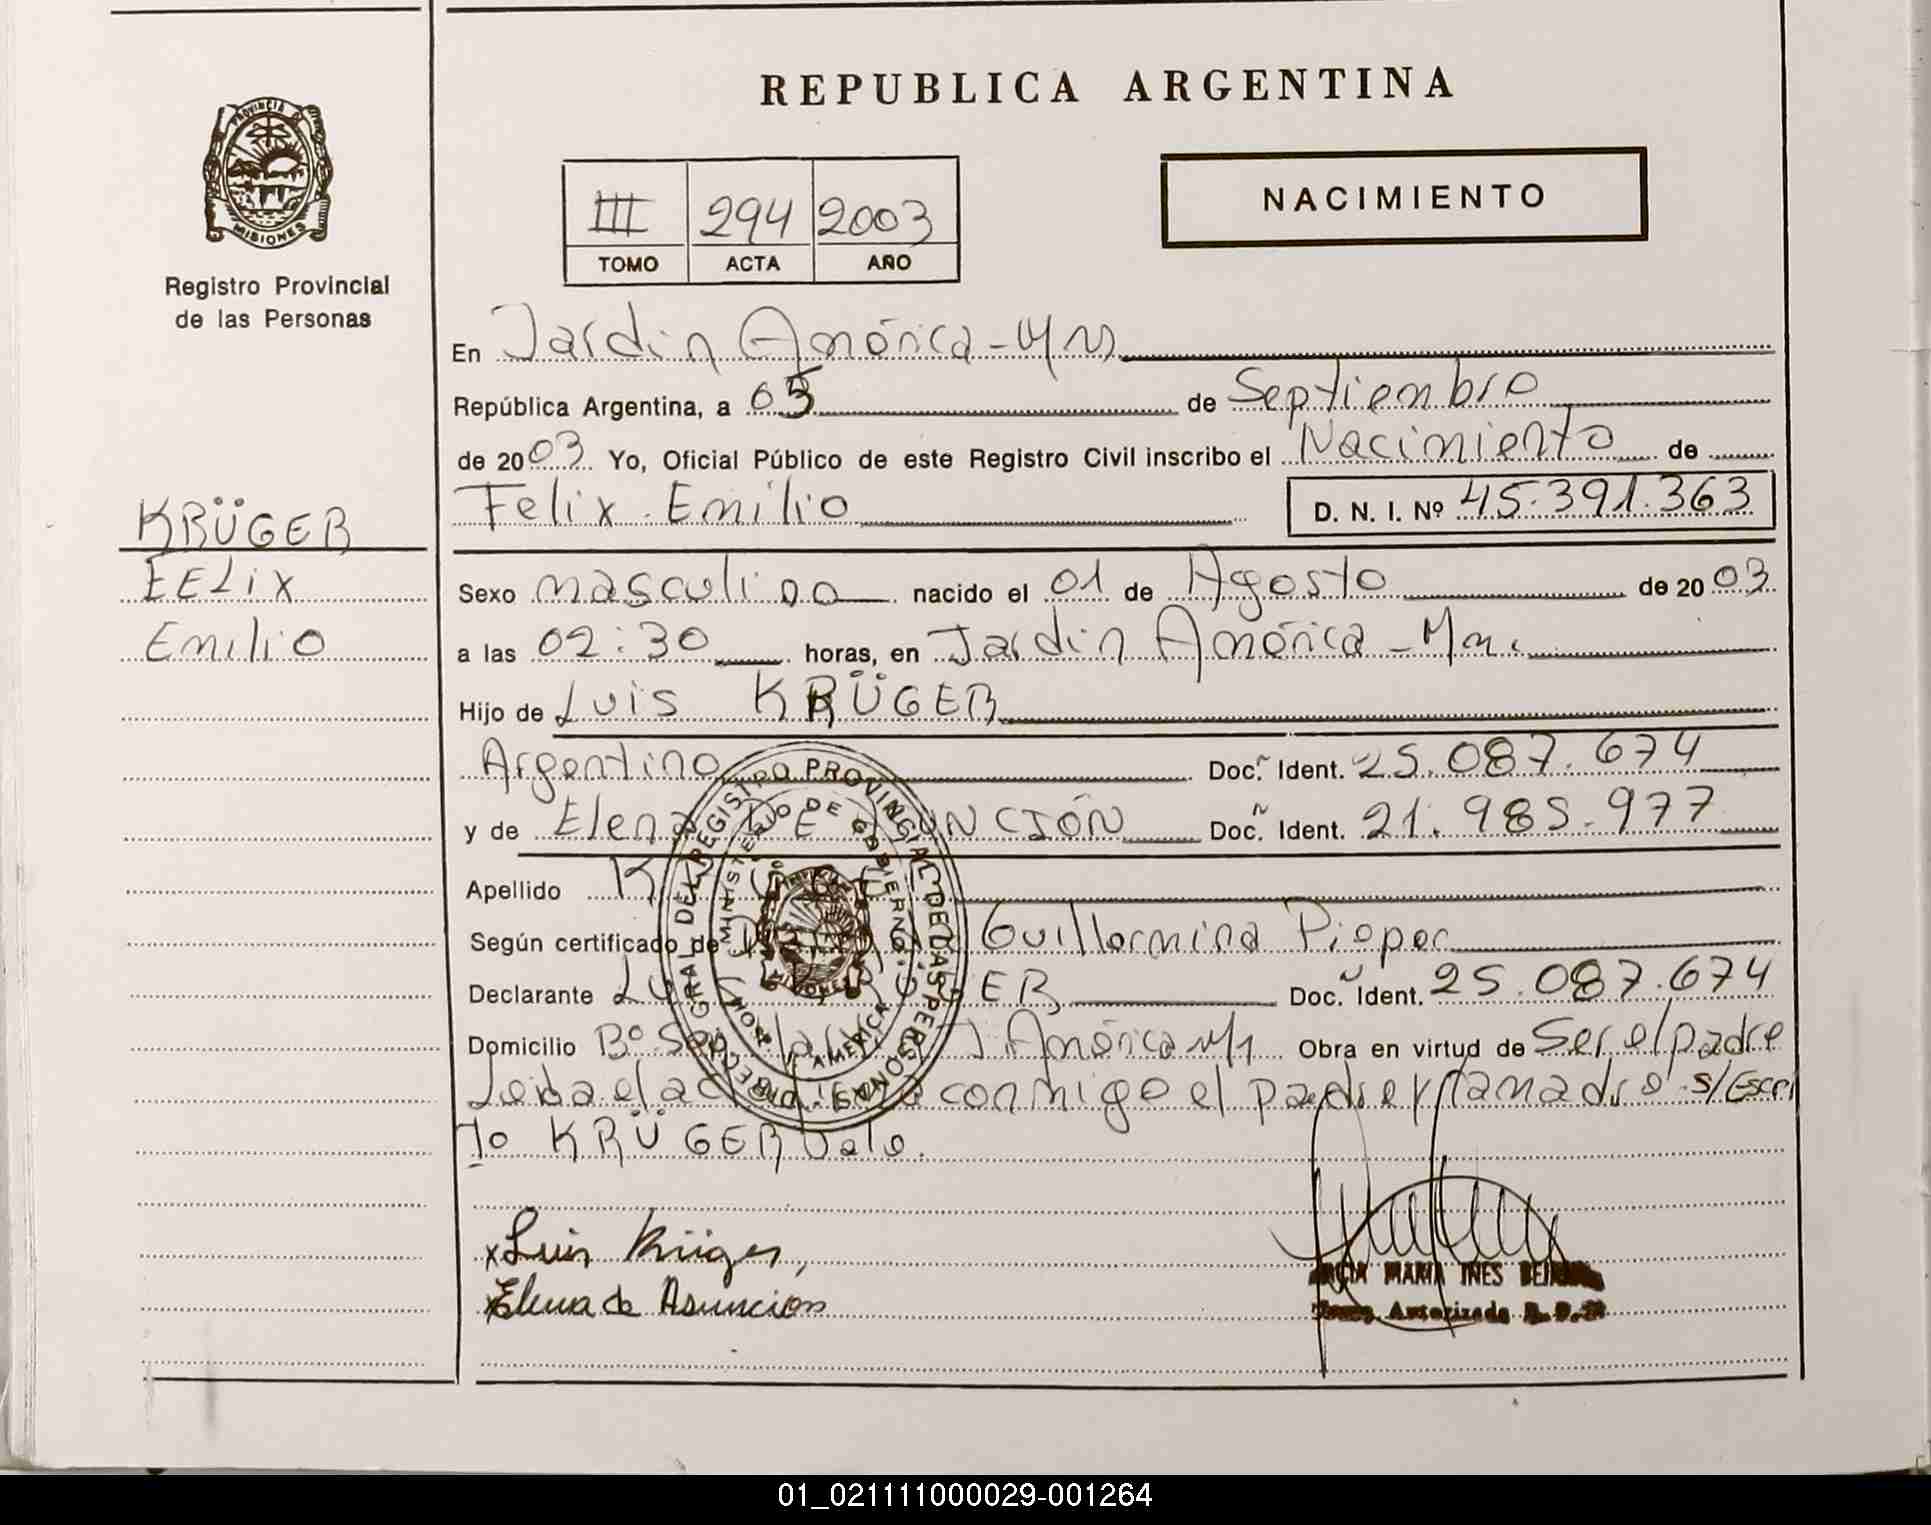 REPUBLICA ARGENTINA
PROVINCIA DE
MISIONES
Registro Provincial
de las Personas
III 294 2003
TOMO ACTA AÑO
NACIMIENTO
En Jardin América - Mns
República Argentina, a 05 de Septiembre
de 2003 Yo, Oficial Público de este Registro Civil inscribo el Nacimiento de
Felix Emilio D. N. I. Nº 45.391.363
KRÜGER
FELIX
Emilio
Sexo masculino nacido el 01 de Agosto de 2003
a las 02:30 horas, en Jardin América - Mn.
Hijo de Luis KRÜGER
Argentino Doc. Ident. 25.087.674
y de Elena DE ASUNCIÓN Doc. Ident. 21.985.977
Apellido KRÜGER
Según certificado de Guillermina Pieper
Declarante Luis KRÜGER Doc. Ident. 25.087.674
Domicilio Bº J. América Obra en virtud de Ser el padre
Leida el acta conmigo el padre y la madre s/Escri
to KRÜGER Vale.
DIREC. GRAL DEL REGISTRO PROVINCIAL DE LAS PERSONAS
MINISTERIO DE GOBIERNO
AMERICA
x Luis Krüger,
x Elena de Asunción
MARIA INES
Autorizada
01_021111000029-001264